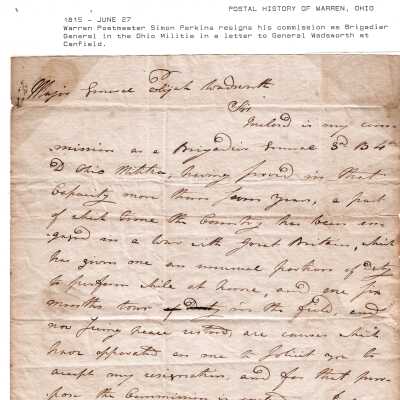 POSTAL HISTORY OF WARREN, OHIO
1815 - JUNE 27
Warren Postmaster Simon Perkins resigns his commission as Brigadier
General in the Ohio Militia in a letter to General Wadsworth at
Canfield.
Major General Elijah Wadsworth
Sir
Inclosed is my com-
mission as a Brigadier General 3d B 4th
D Ohio Militia, having served in that
Capacity more than seven years, a part
of which time the Country has been en-
gaged in a war with Great Britain, which
has given me an unusual portion of duty
to perform while at home, and one six
months tour of Duty in the field, and
now being peace restored, are causes which
have operated on me to solicit you to
accept my resignation, and for that pur-
pose the Commission is